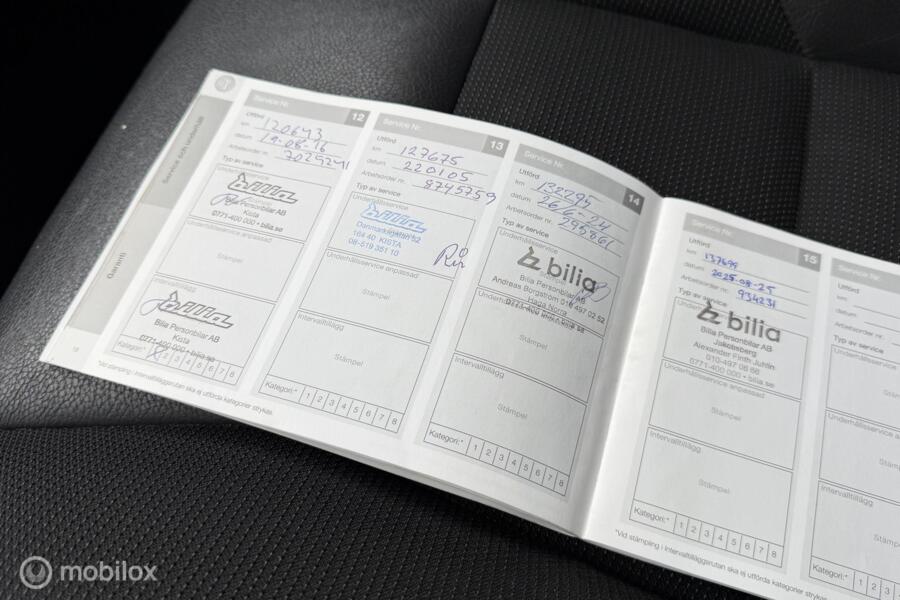 Service och underhåll
Garanti
Service Nr. 12
Utförd
km 120643
datum 19-08-16
Arbetsorder nr.
Typ av service
Underhållsservice
bilia
Bilia Personbilar AB
Kista
0771-400 000 • bilia.se
Underhållsservice anpassad
Stämpel
Intervalltillägg
bilia
Bilia Personbilar AB
Kista
0771-400 000 • bilia.se
Kategori:* 1 2 3 4 5 6 7 8
Service Nr. 13
Utförd
km 127675
datum 220105
Arbetsorder nr. 8745759
Typ av service
Underhållsservice
bilia
Danmarksgatan 52
164 40 KISTA
08-519 351 10
Underhållsservice anpassad
Stämpel
Intervalltillägg
Stämpel
Kategori:* 1 2 3 4 5 6 7 8
Service Nr. 14
Utförd
km 132795
datum 26-6-24
Arbetsorder nr. 295861
Typ av service
Underhållsservice
bilia
Bilia Personbilar AB
Andreas Borgström 010-497 02 52
Haga Norra
0771-400 000 • bilia.se
Stämpel
Intervalltillägg
Stämpel
Kategori:* 1 2 3 4 5 6 7 8
Service Nr. 15
Utförd
km 137699
datum 2025-08-25
Arbetsorder nr. 934231
Typ av service
Underhållsservice
bilia
Bilia Personbilar AB
Jakobsberg
Alexander Firth Juhlin
010-497 08 66
0771-400 000 • bilia.se
Underhållsservice anpassad
Stämpel
Intervalltillägg
Stämpel
Kategori:* 1 2 3 4 5 6 7 8
Service Nr.
Utförd
km
datum
Arbetsorder nr.
Typ av service
Underhållsservice
Underhållsservice
Intervalltillägg
Kategori:* 1 2 3
*Vid stämpling i Intervalltilläggsrutan ska ej utförda kategorier strykas.
*Vid stämpling i Intervalltilläggsrutan ska ej utförda kategorier strykas.
mobilox